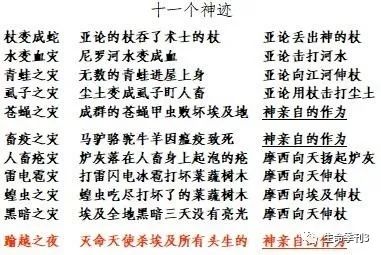 十一个神迹
杖变成蛇 亚伦的杖吞了术士的杖 亚伦丢出神的杖
水变血灾 尼罗河水变成血 亚伦击打河水
青蛙之灾 无数的青蛙进屋上身 亚伦向江河伸杖
虱子之灾 尘土变成虱子叮人畜 亚伦用杖击打尘土
苍蝇之灾 成群的苍蝇甲虫败坏埃及地 神亲自的作为
畜疫之灾 马驴骆驼牛羊因瘟疫致死 神亲自的作为
人畜疮灾 炉灰落在人畜身上起泡的疮 摩西向天扬起炉灰
雷电雹灾 打雷闪电冰雹打坏菜蔬树木 摩西向天伸杖
蝗虫之灾 蝗虫吃尽打坏了的菜蔬树木 摩西向埃及伸杖
黑暗之灾 埃及全地黑暗三天没有亮光 摩西向天伸杖
踰越之夜 灭命天使杀埃及所有头生的 神亲自的作为
生命季刊3